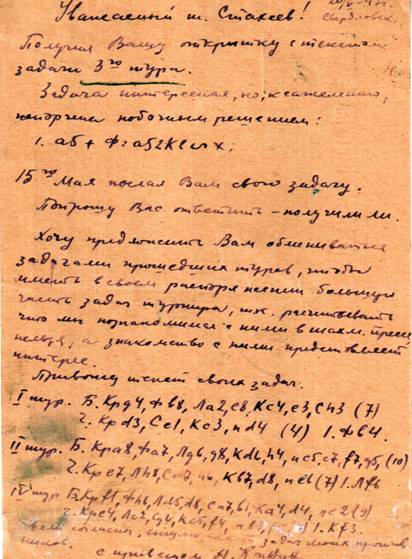 Уважаемый т. Стахеев!
Свердловск.
Получил Вашу открытку с текстом
задачи 3го тура.
Задача интересная, но, к сожалению,
испорчена побочным решением:
1. аб + Ф: аб2
15го Мая послал Вам свою задачу.
Попрошу Вас ответить – получили ли.
Хочу предложить Вам обмениваться
задачами прошедших туров, чтобы
иметь в своем распоряжении большую
часть задач турнира, т.к. расчитывать
что мы познакомимся с ними в шахм. прессе
нельзя, а знакомство с ними представляет
интерес.
Привожу текст своих задач.
I тур. Б. Крg4, Фb8, Лa2, e8, Кc4, e3, Сh3 (7)
Ч. Крd3, Сe1, Кc3, пd4 (4) 1. Фb4.
II тур. Б. Крa8, Фa7, Лg6, g8, Кd6, h4, пc5, c7, f7, g5 (10)
Ч. Крe7, Лh8, Кb7, d8, (7) 1. Лf6
IV тур Б. Крf1, Фh6, Лb5, d8, Сa7, b1, Кa4, d4, (9)
Ч. Крe4, 1. Кf3.
задач моих против-
ников.
с приветом